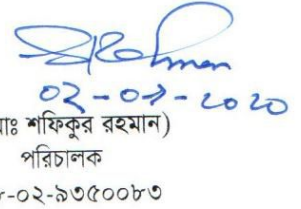 ০২-০৭-২০২০
াঃ শফিকুর রহমান)
পরিচালক
-০২-৯৩৫০০৮৩